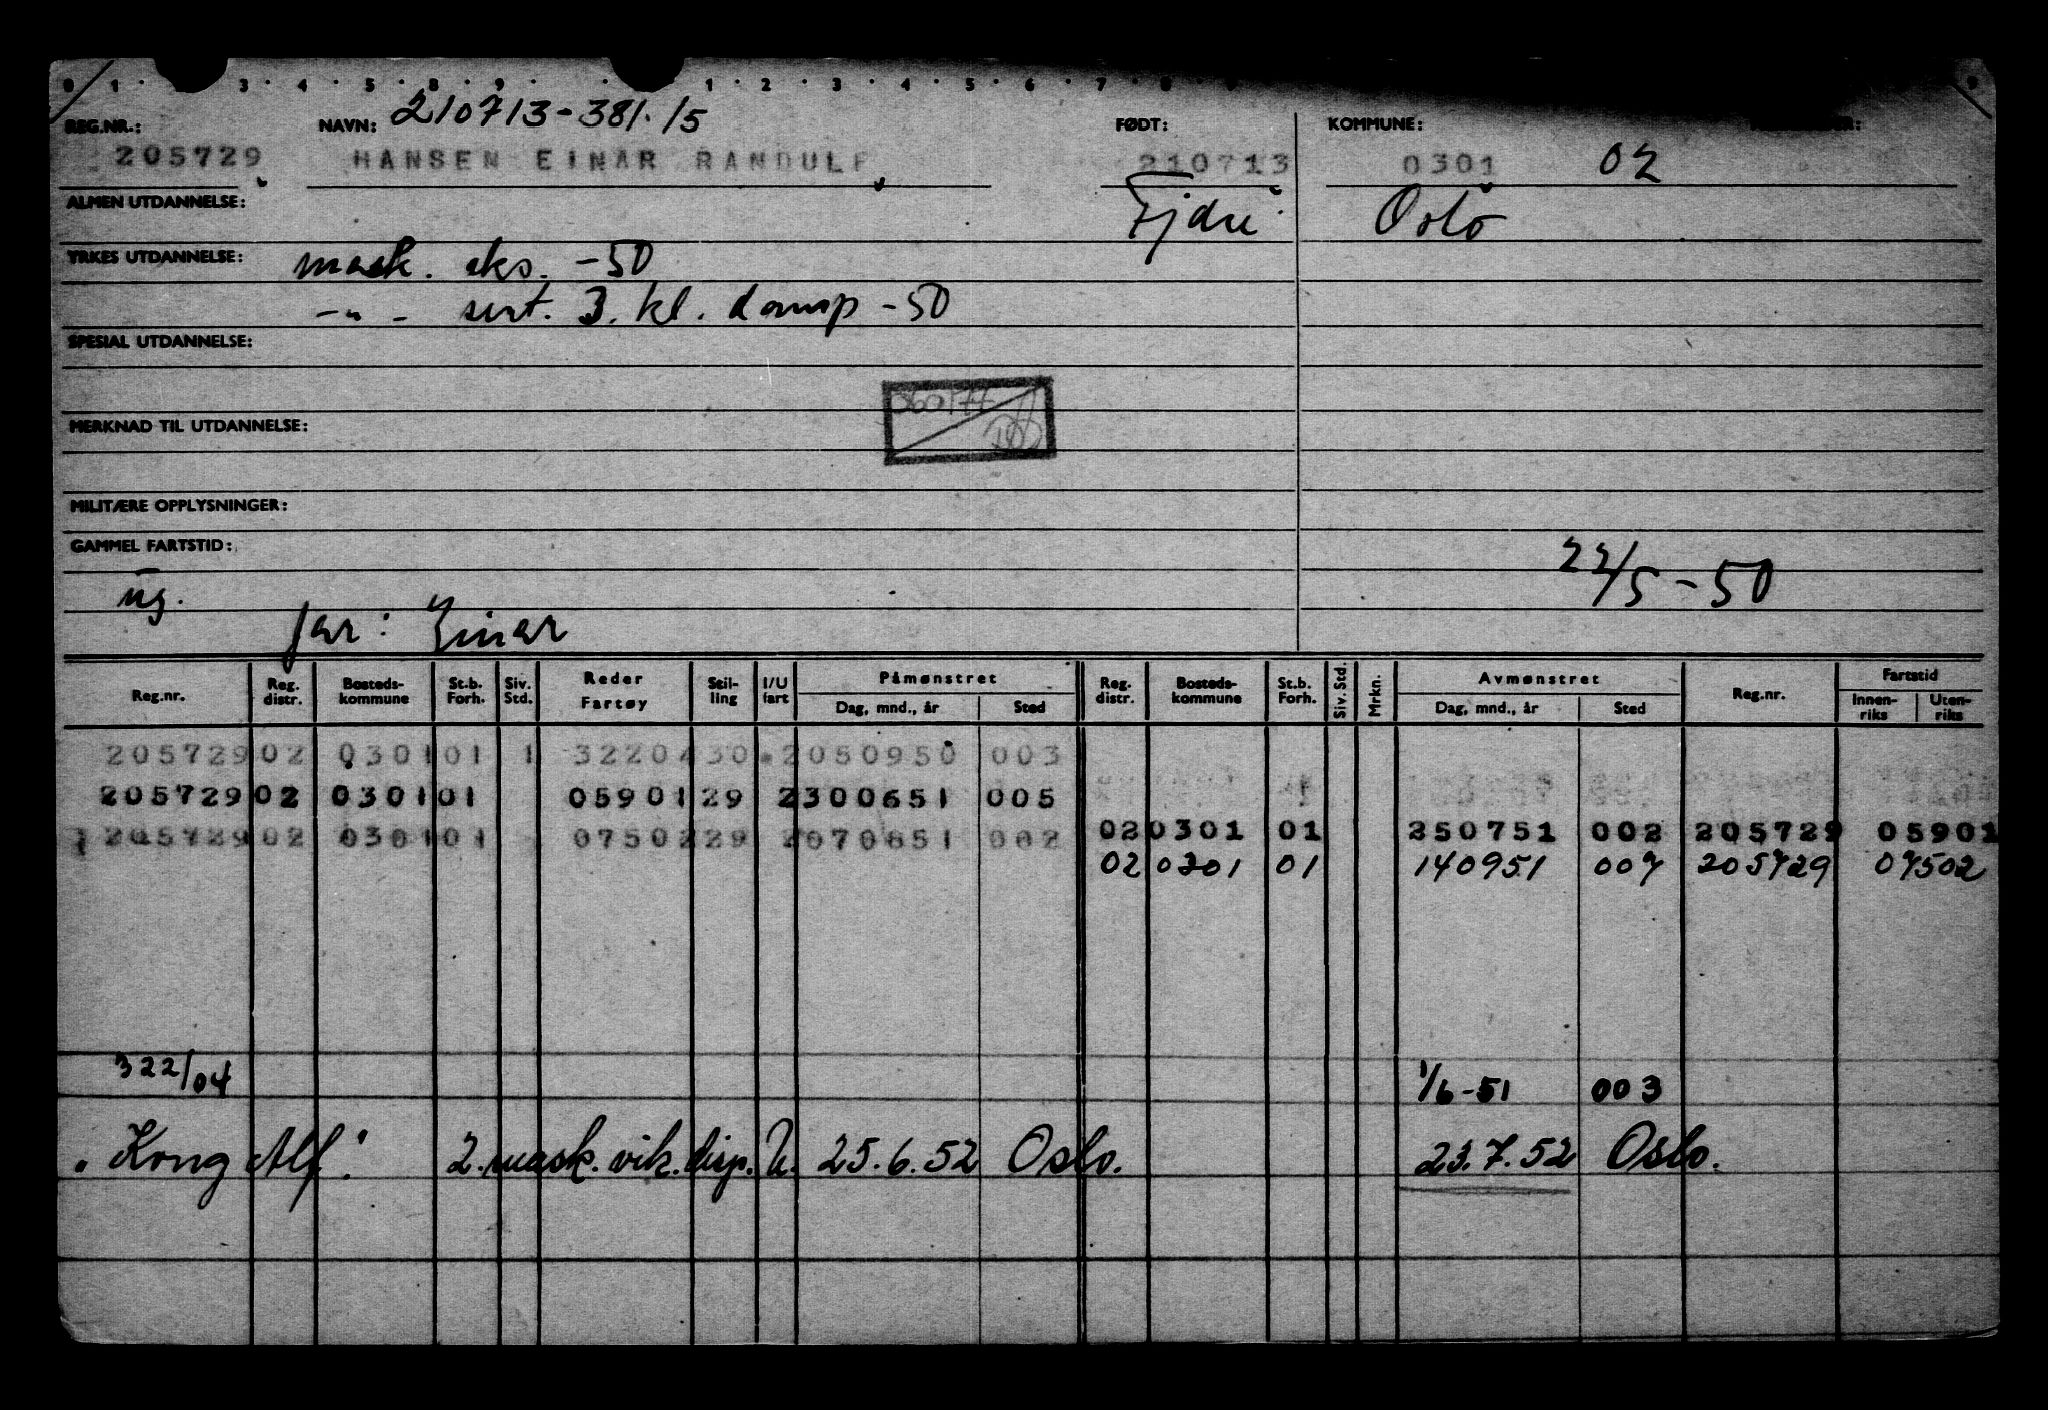 0 1 . 3 . 4 . 5 . 8 . 9 . . 1 . 2 . 3 . 4 . 5 . 6 . 7 . 8 . 9
210713-381.15
REG.NR.: NAVN: FØDT: KOMMUNE:
205729 HANSEN EINAR RANDULF 210713 0301 02
ALMEN UTDANNELSE: Oslo
YRKES UTDANNELSE: mask. eks. -50
-"- sert. 3. kl. damp -50
SPESIAL UTDANNELSE:
MERKNAD TIL UTDANNELSE:
MILITÆRE OPPLYSNINGER:
GAMMEL FARTSTID: 22/5-50
ug.
far: Einar
Reg.nr. Reg. distr. Bosteds-kommune St.b. Forh. Siv. Std. Reder Fartøy Stil-ling I/U fart Påmønstret Dag, mnd., år Sted Reg. distr. Bosteds-kommune St.b. Forh. Siv. Std. Mrkn. Avmønstret Dag, mnd., år Sted Reg.nr. Fartstid Innen-riks Uten-riks
205729 02 0301 01 1 32204 30 2 050950 003
205729 02 0301 01 05901 29 2 300651 005
205729 02 0301 01 07502 29 2 070851 002 02 0301 01 250751 002 205729 05901
02 0301 01 140951 007 205729 07502
322/04 1/6-51 003
"Kong Alf" 2. mask. vik. disp. U. 25.6.52 Oslo. 23.7.52 Oslo.